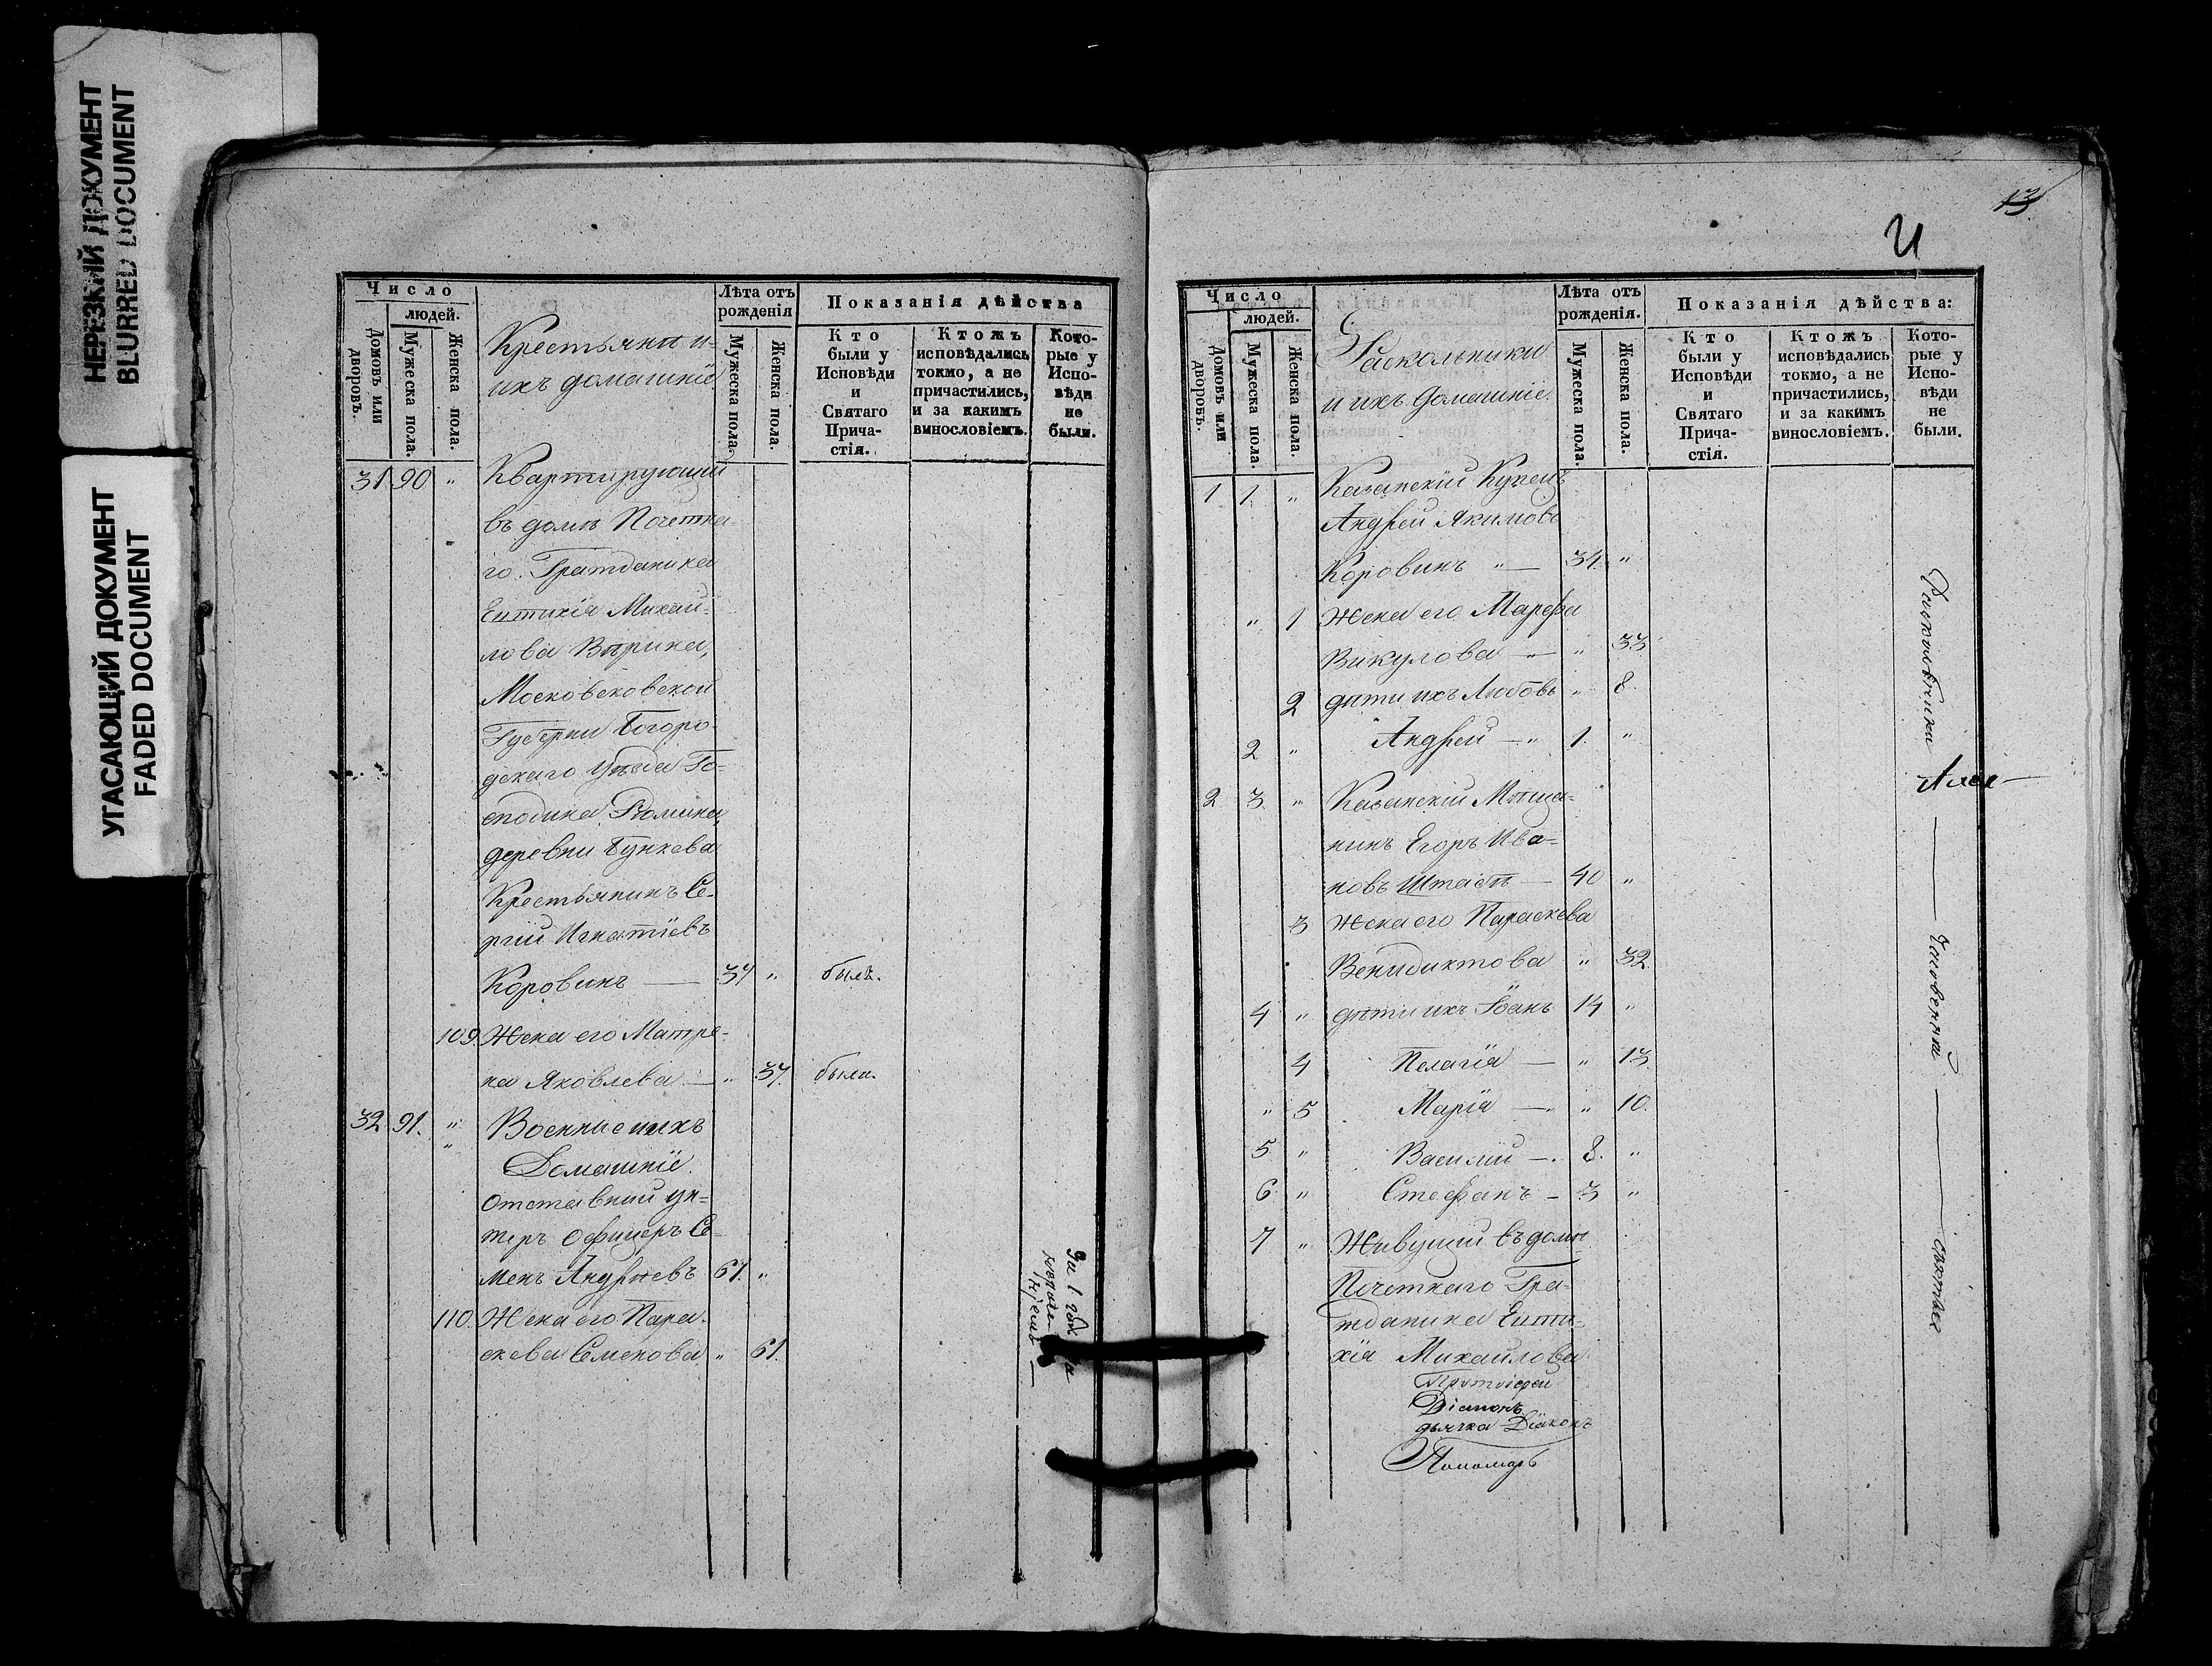 НЕРЕЗКИЙ ДОКУМЕНТ
BLURRED DOCUMENT
УГАСАЮЩИЙ ДОКУМЕНТ
FADED DOCUMENT
Число
людей.
Домовъ или дворовъ.
Мужеска пола.
Женска пола.
Крестьяни и
ихъ домашніе
Лѣта отъ рожденія
Мужеска пола.
Женска пола.
Показанія дѣйства
Кто были у Исповѣди и Святаго Прича-стія.
Ктожъ исповѣдались токмо, а не причастились, и за какимъ винословіемъ.
Кото-рые у Испо-вѣди не были.
31 90 " Квартирующий
въ домѣ Почетна-
го Гражданина
Евтихія Михай-
лова Вѣрина,
Московсковской
Губерни Богоро-
дскаго Уѣзда Го-
сподина Рюмина,
деревни Бункова
Крестьянинъ Се-
ргій Игнатіевъ
Коровинъ — 37 " былъ.
109. Жена его Матре-
на Яковлева — " 37. была.
32 91. " Военние ихъ
" Домашніе.
Отставний ун-
теръ Офицеръ Се-
менъ Андреевъ 67. "
110. Жена его Пара-
скева Семенова " 61.
13
Число
людей.
Домовъ или дворовъ.
Мужеска пола.
Женска пола.
Раскольники
и ихъ домашніе.
Лѣта отъ рожденія.
Мужеска пола.
Женска пола.
Показанія дѣйства:
Кто были у Исповѣди и Святаго Прича-стія.
Ктожъ исповѣдались токмо, а не причастились, и за какимъ винословіемъ.
Кото-рые у Испо-вѣди не были.
1 1. " Казанскій Купецъ
Андрей Якимовъ
Коровинъ " — 34. "
" 1 Жена его Марфа
Викулова — " 33
2 дѣти ихъ Любовь " 8.
2 " Андрей — " 1. "
2 3. " Казанскій Мѣща-
нинъ Егоръ Ива-
новъ — 40 "
3 Жена его Параскева
Венидиктова " 32.
4 " дѣти ихъ Іоанъ 14 "
4 Пелагія — " 13.
" 5 Марія — " 10.
5 " Василій — 8. "
6. " Стефанъ — 3 "
7 " Живущий въ домѣ
Почетнаго Гра-
жданина Евти-
хія Михайлова
Протоіерей
Діаконъ
дьячка Діаконъ
Пономарь